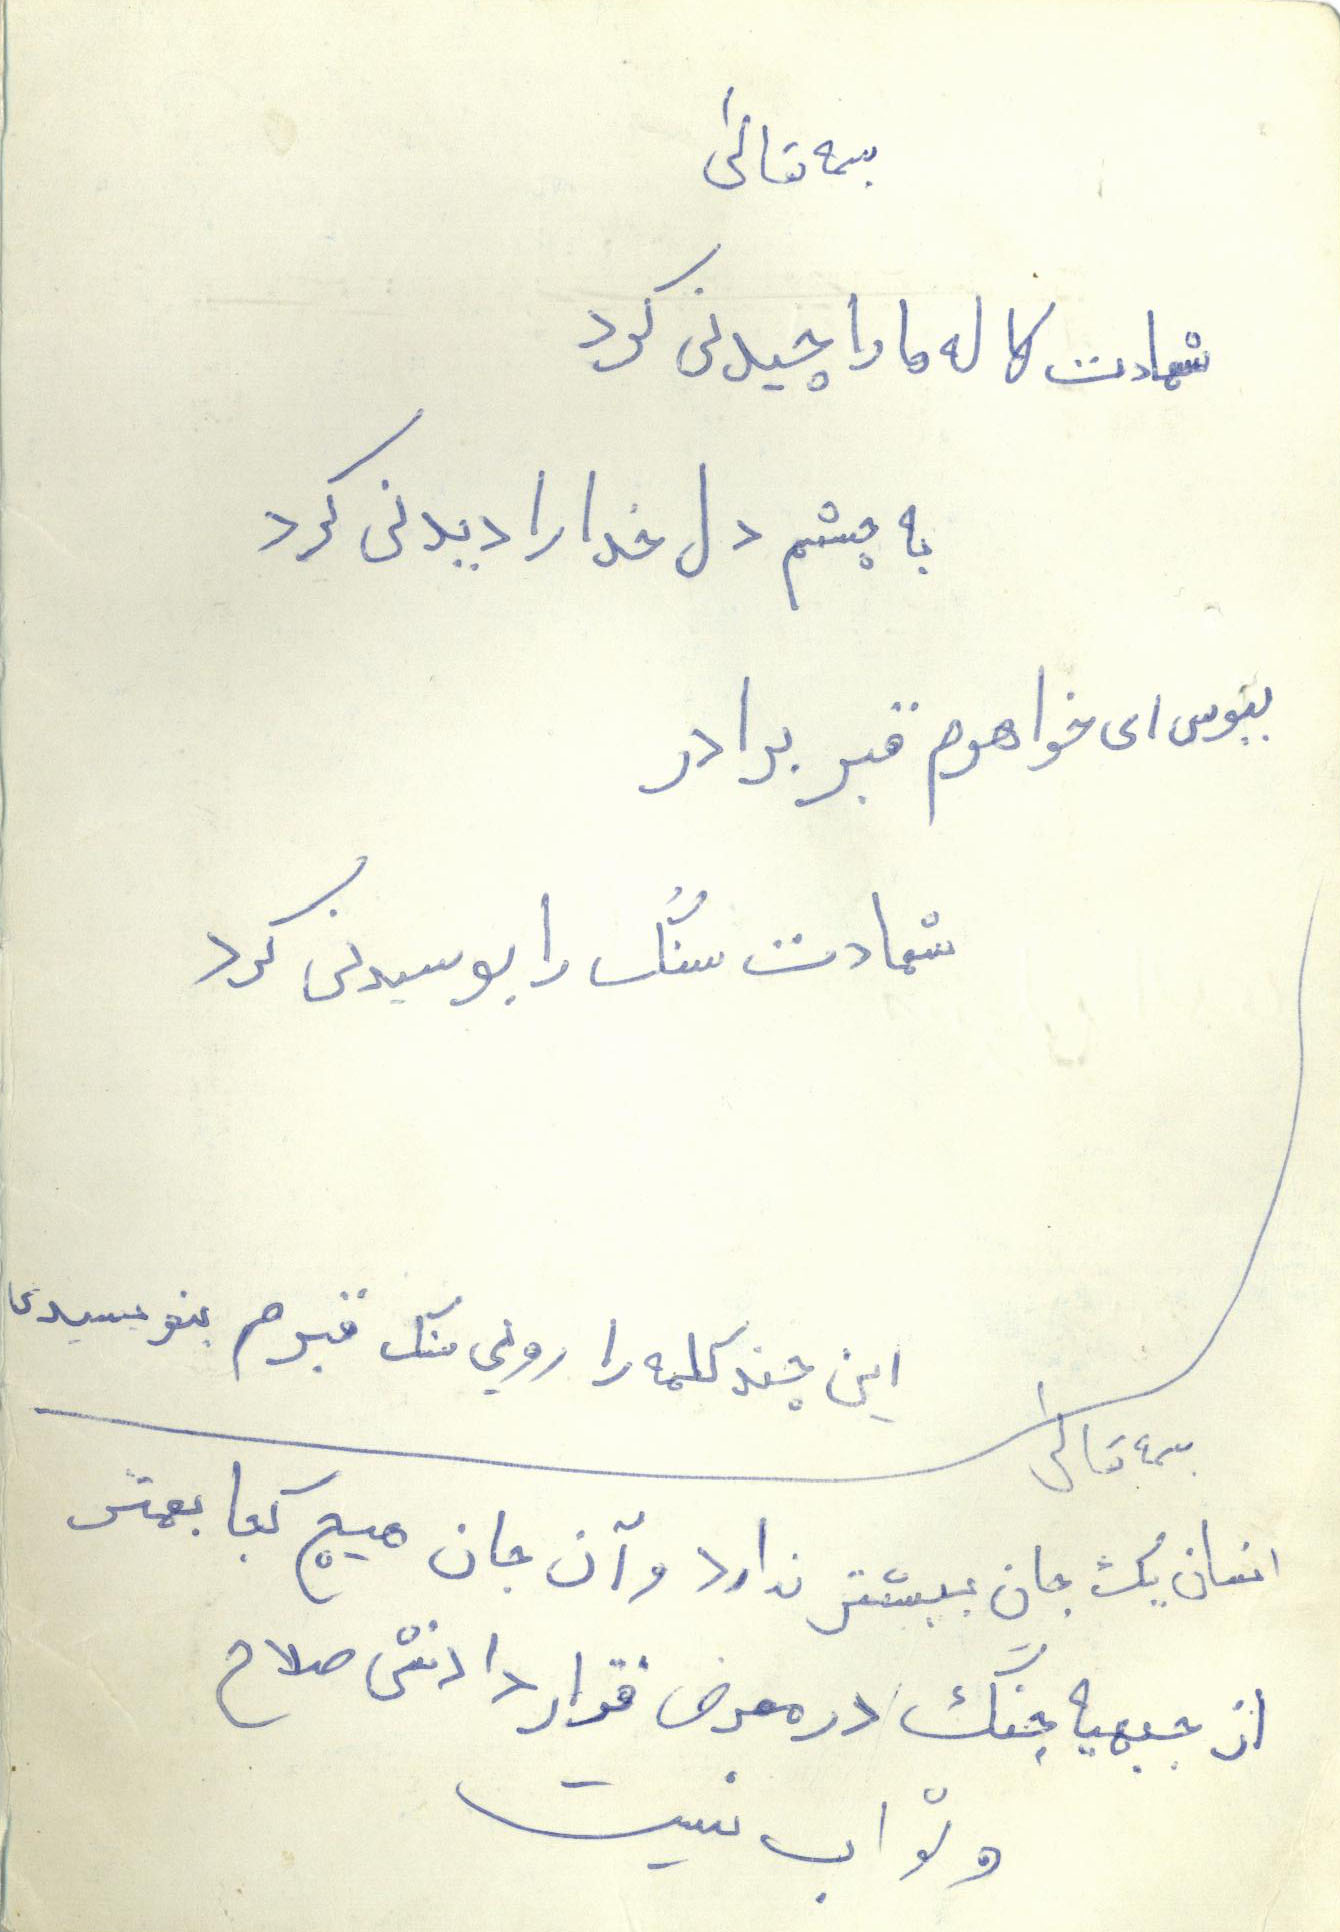 بسمه تعالی
شهادت لاله ها را چیدنی کرد
به چشم دل خدا را دیدنی کرد
ببوس ای خواهرم قبر برادر
شهادت سنگ را بوسیدنی کرد
این چند کلمه را روی سنگ قبرم بنویسیدی
بسمه تعالی
انسان یک جان بیشتر ندارد و آن جان هیچ کجا بهتر
از جبهیه جنگ در معرض قرار دادنش صلاح
و ثواب نیست